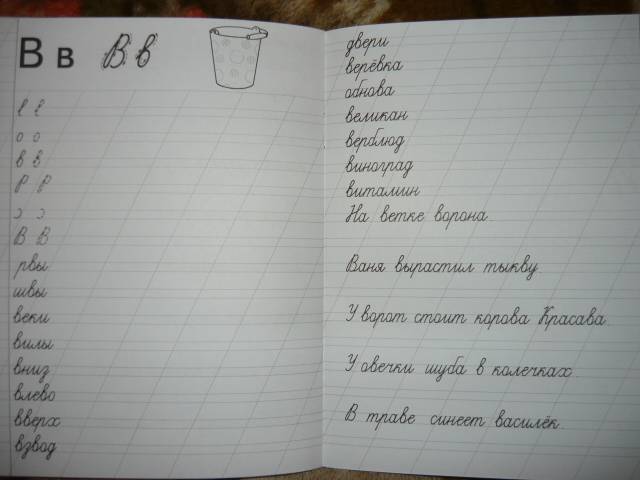 В в В в
е е
о о
в в
Р Р
э э
В В
рвы
швы
веки
вилы
вниз
влево
вверх
взвод
двери
верёвка
обнова
великан
верблюд
виноград
витамин
На ветке ворона.
Ваня вырастил тыкву.
У ворот стоит корова Красава.
У овечки шуба в колечках.
В траве синеет василёк.